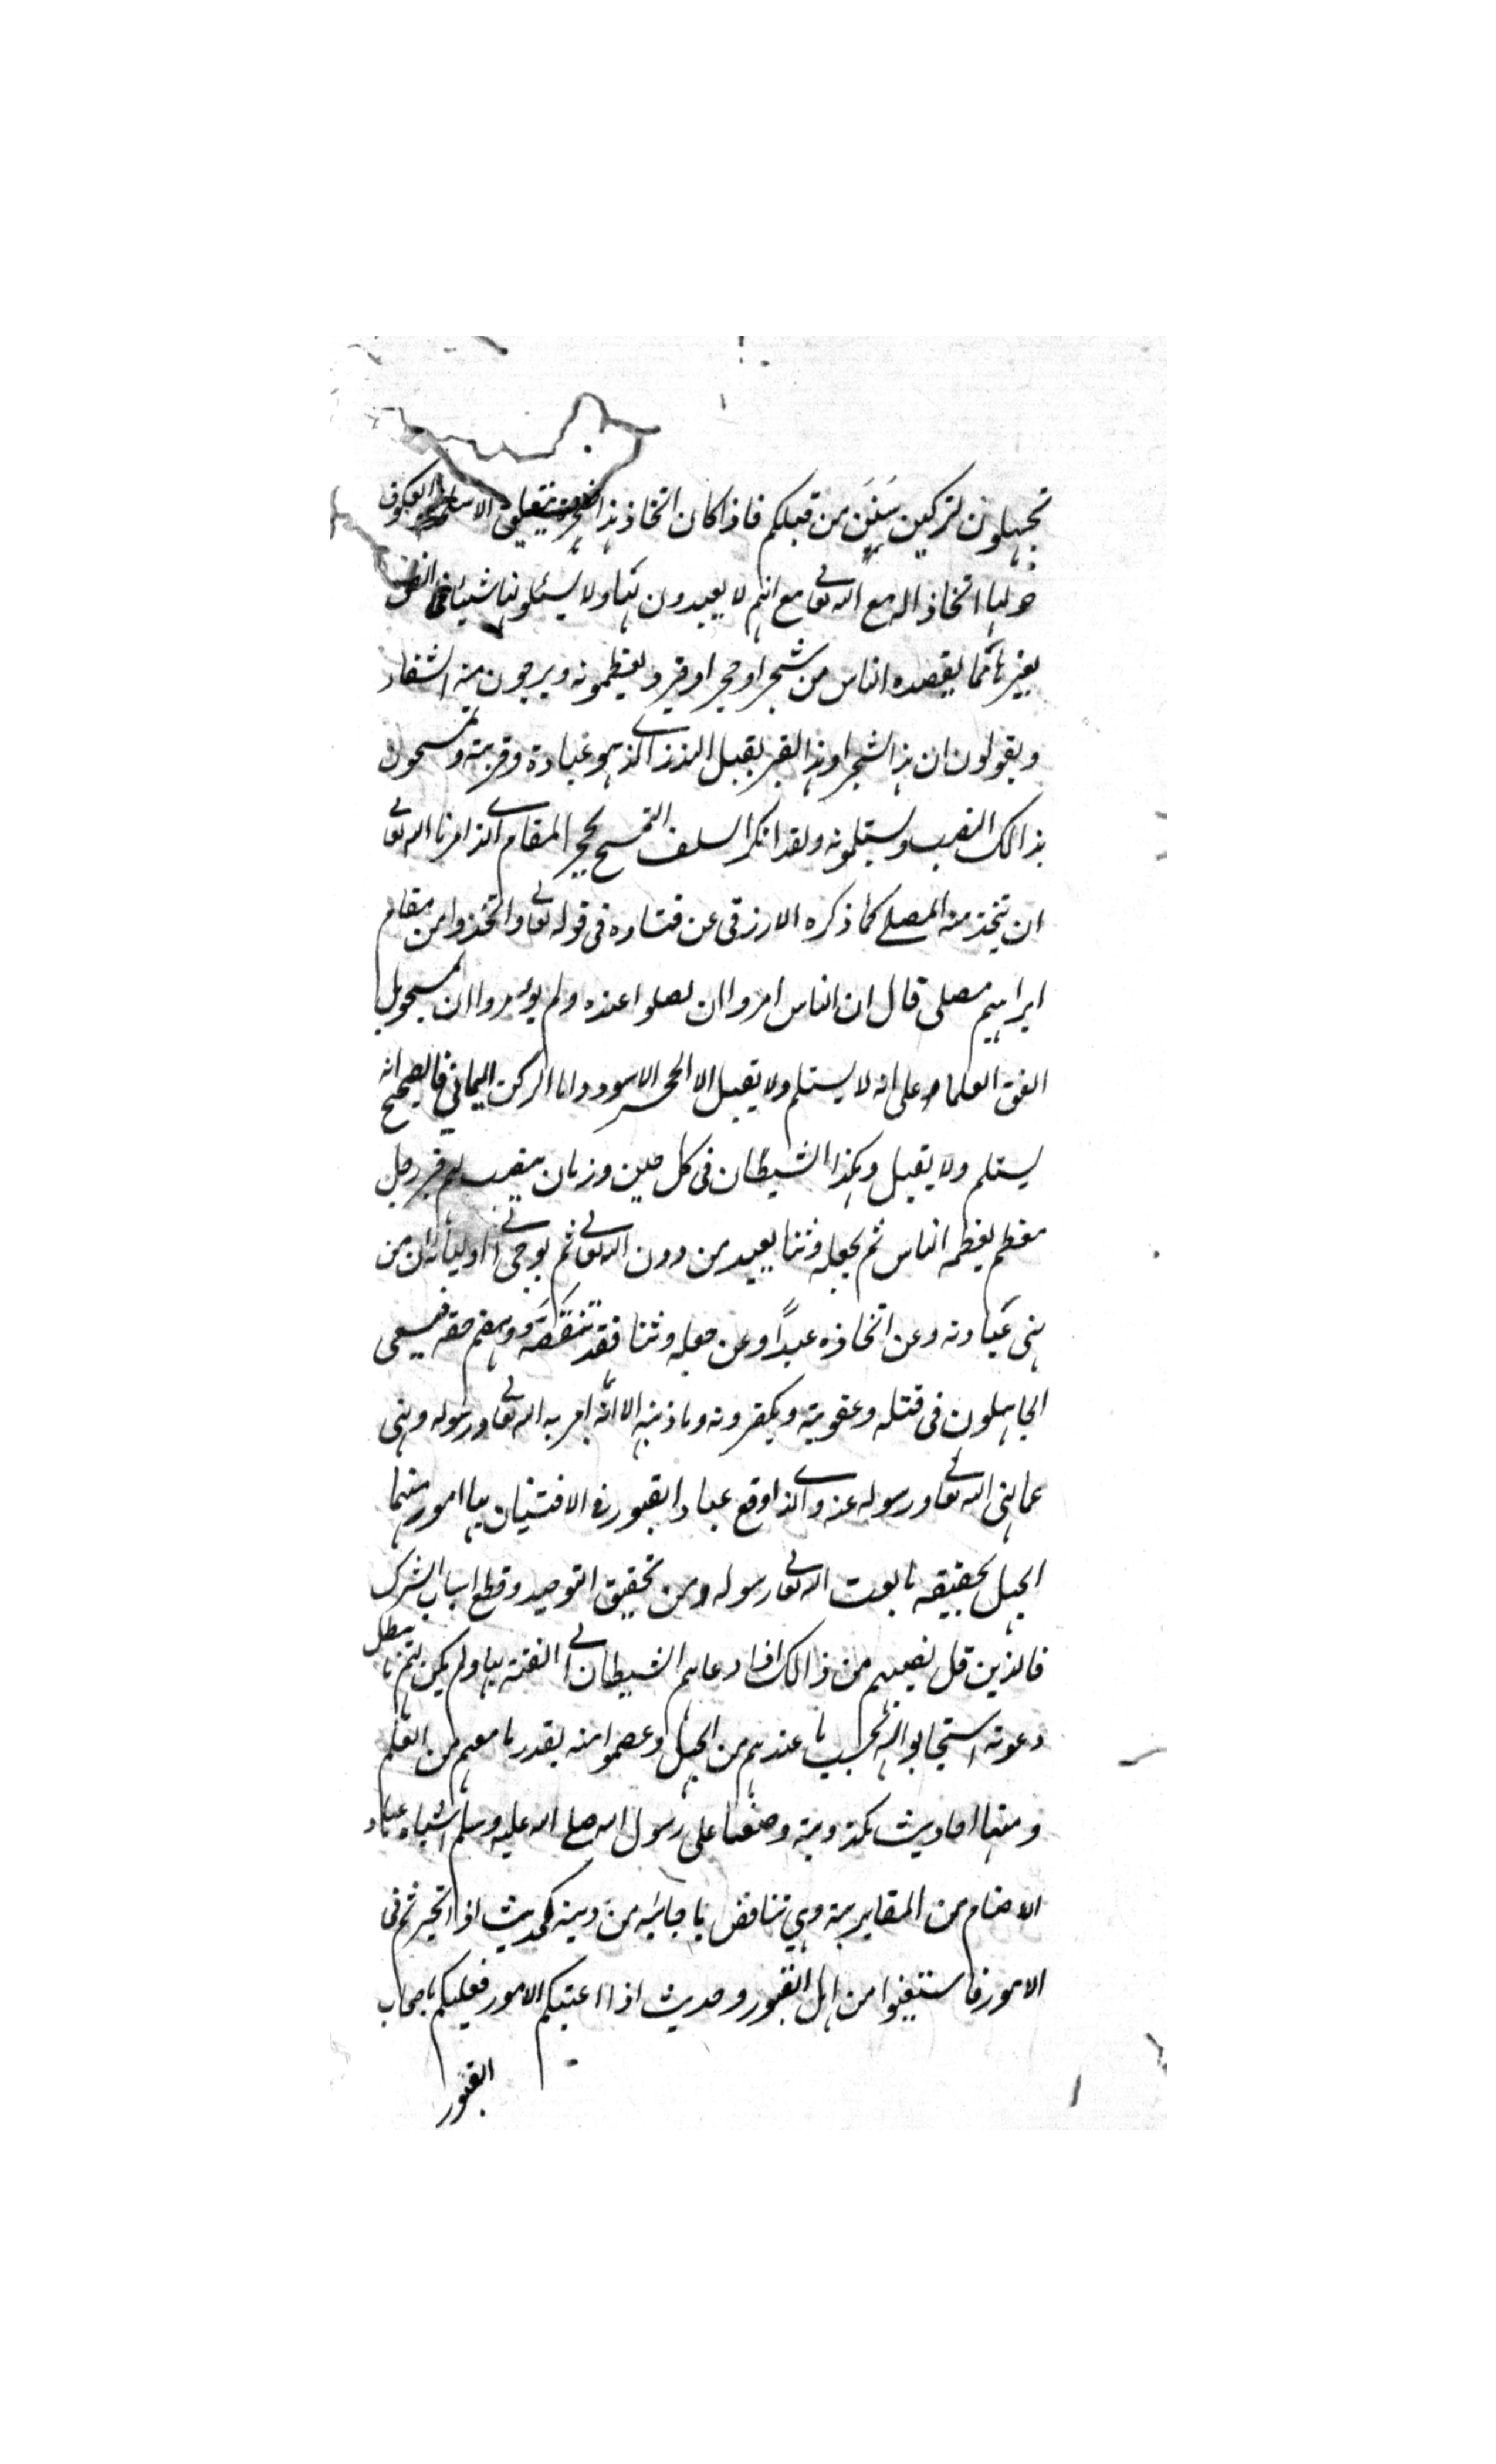 تجهلون لتركبن سَنَنَ من قبلكم فاذا كان اتخاذ هذا الشجرة لتعليق الاسلحة والعكوف
حولها اتخاذ اله مع الله تعالى مع انهم لا يعبدون لها ولا يسئلونها شيئا فما الظن
بغيرها مما يقصده الناس من شجر او حجر او قبر ويعظمونه ويرجون منه الشفاء
ويقولون ان هذا الشجر او هذا القبر يقبل النذر الذى هو عبادة وقربة ويتمسحون
بذالك النصب ويستلمونه ولقد انكر السلف التمسح بحجر المقام الذى امرنا الله تعالى
ان يتخذ منه المصلى كما ذكره الارزقى عن قتاده فى قوله تعالى واتخذوا من مقام
ابراهيم مصلى قال ان الناس امروا ان يصلوا عنده ولم يؤمروا ان يمسحوه بل
اتفق العلماء على انه لا يستلم ولا يقبل الا الحجر الاسود واما الركن اليمانى فالصحيح انه
يستلم ولا يقبل وهكذا الشيطان فى كل حين وزمان ينصب لهم قبر رجل
معظم يعظمه الناس ثم يجعله وثنا يعبد من دون الله تعالى ثم يوحى الى اوليائه ان من
نهى عبادته وعن اتخاذه عيداً وعن جعله وثنا فقد تَنَقَّصَه وهضم حقه فيسعى
الجاهلون فى قتله وعقوبته ويكفرونه وما ذنبه الا انه امر بما امر به الله تعالى ورسوله ونهى
عما نهى الله تعالى ورسوله عنه والذى اوقع عباد القبور فى الافتتان بها امور منها
الجهل بحقيقه ما بعث الله تعالى رسوله من تحقيق التوحيد وقطع اسباب الشرك
فالذين قل نصيبهم من ذالك اذا دعاهم الشيطان الى الفتنه بها ولم يكن لهم ما يبطل
دعوته استجابوا له بحسب ما عندهم من الجهل وعصموا منه بقدر ما معهم من العلم
ومنها احاديث مكذوبة وضعها على رسول الله صلى الله عليه وسلم اشباه عباد
الاصنام من المقابرية وهى تناقض ما جاء به من دينه كحديث اذا تحيرتم فى
الامور فاستعينوا من اهل القبور وحديث اذا اعيتكم الامور فعليكم باصحاب
القبور